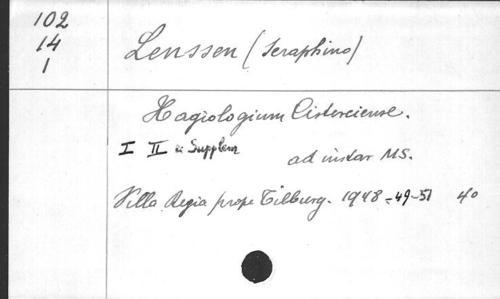 102
14
1
Lenssen (Seraphino)
Hagiologium Cisterciense.
I II et Supplem
ad instar MS.
Villa Regia prope Tilburg. 1948-49-51 4o